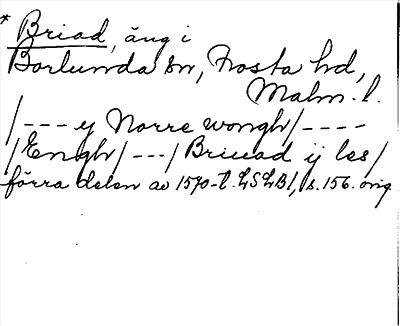 * Briad, äng i
Borlunda sn, Frosta hd,
Malm. l.
/--- y Norre wongh/----
/Engh/---/ Briuad ij les/
förra delen av 1570-t. LSLB1, s. 156. orig.